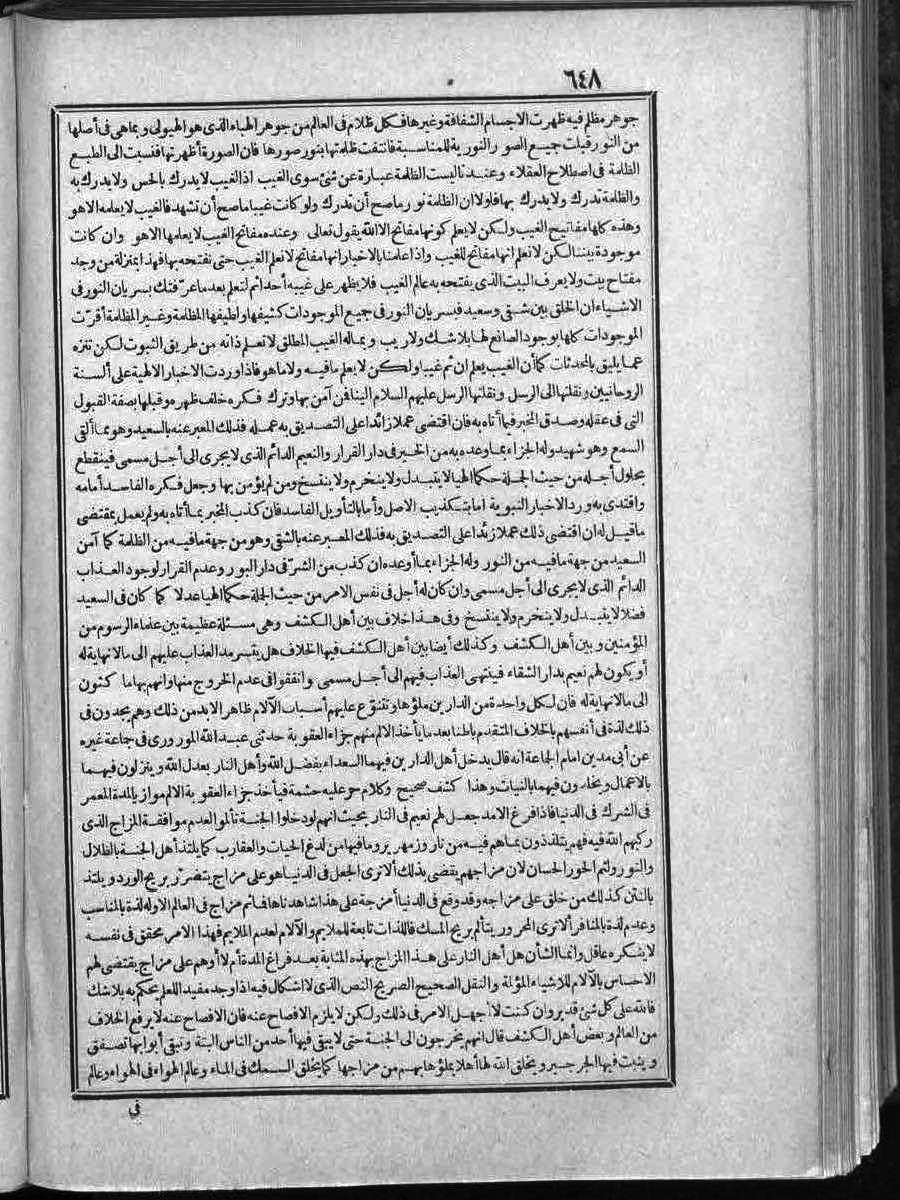 ٦٤٨
جوهر مظلم فيه ظهرت الاجسام الشفافة وغيرها فكل ظلام فى العالم من جوهر الهباء الذى هو الهيولى وبما هى فى أصلها
من النور قبلت جميع الصور النورية للمناسبة فانتفت ظلمتها بنور صورها فان الصورة أظهرتها فنسبت الى الطبع
الظلمة فى اصطلاح العقلاء وعندنا ليست الظلمة عبارة عن شئ سوى الغيب اذ الغيب لا يدرك بالحس ولا يدرك به
والظلمة تدرك ولا يدرك بها فلولا ان الظلمة نور ما صح أن تدرك ولو كانت غيبا ما صح أن تشهد فالغيب لا يعلمه الا هو
وهذه كلها مفاتيح الغيب ولكن لا يعلم كونها مفاتح الا الله يقول تعالى وعنده مفاتح الغيب لا يعلمها الا هو وان كانت
موجودة بيننا لكن لا نعلم انها مفاتح للغيب واذا علمنا بالاخبار انها مفاتح لا نعلم الغيب حتى نفتحه بها فهذا بمنزلة من وجد
مفتاح بيت ولا يعرف البيت الذى يفتحه به عالم الغيب فلا يظهر على غيبه أحدا ثم لتعلم بعد ما عرّفتك بسريان النور فى
الاشياء ان الخلق بين شقى وسعيد فبسريان النور فى جميع الموجودات كثيفها ولطيفها المظلمة وغير المظلمة أقرّت
الموجودات كلها بوجود الصانع لها بلا شك ولا ريب وبماله الغيب المطلق لا تعلم ذاته من طريق الثبوت لكن تنزه
عما يليق بالمحدثات كما أن الغيب يعلم ان ثم غيبا ولكن لا يعلم ما فيه ولا ما هو فاذا وردت الاخبار الالهية على ألسنة
الروحانيين ونقلتها الى الرسل ونقلتها الرسل عليهم السلام الينا فمن آمن بها وترك فكره خلف ظهره وقبلها بصفة القبول
التى فى عقله وصدق المخبر فيما أتاه به فان اقتضى عملا زائدا على التصديق به عمله فذلك المعبر عنه بالسعيد وهو ممن ألقى
السمع وهو شهيد وله الجزاء بما وعده به من الخير فى دار القرار والنعيم الدائم الذى لا يجرى الى أجل مسمى فينقطع
بحلول أجله من حيث الجملة حكما الهيا لا يتبدل ولا ينخرم ولا ينفسخ ومن لم يؤمن بها وجعل فكره الفاسد أمامه
واقتدى به ورد الاخبار النبوية اما بتكذيب الاصل وأما بالتأويل الفاسد فان كذب المخبر بما أتاه به ولم يعمل بمقتضى
ما قيل له ان اقتضى ذلك عملا زائدا على التصديق به فذلك المعبر عنه بالشقى وهو من جهة ما فيه من الظلمة كما آمن
السعيد من جهة ما فيه من النور وله الجزاء بما أوعده ان كذب من الشرّ فى دار البور وعدم القرار لوجود العذاب
الدائم الذى لا يجرى الى أجل مسمى وان كان له أجل فى نفس الامر من حيث الجملة حكما الهيا عدلا كما كان فى السعيد
فضلا لا يتبدل ولا ينخرم ولا ينفسخ وفى هذا خلاف بين أهل الكشف وهى مسئلة عظيمة بين علماء الرسوم من
المؤمنين وبين أهل الكشف وكذلك أيضا بين أهل الكشف فيها الخلاف هل يتسرمد العذاب عليهم الى مالا نهاية له
أو يكون لهم نعيم بدار الشقاء فينتهى العذاب فيهم الى أجل مسمى واتفقوا فى عدم الخروج منها وانهم بها ما كثون
الى مالا نهاية له فان لكل واحدة من الدارين ملؤها وتتنوّع عليهم أسباب الآلام ظاهرا لابد من ذلك وهم يجدون فى
ذلك لذة فى أنفسهم بالخلاف المتقدم باطنا بعد ما يأخذ الالم منهم جزاء العقوبة حدثنى عبد الله الموروورى فى جماعة غيره
عن أبى مدين امام الجماعة انه قال يدخل أهل الدارين فيهما السعداء بفضل الله وأهل النار بعدل الله وينزلون فيهما
بالاعمال ويخلدون فيهما بالنيات وهذا كشف صحيح وكلام حر عليه حشمة فيأخذ جزاء العقوبة الالم موازيا لمدة المعمر
فى الشرك فى الدنيا فاذا فرغ الامد جعل لهم نعيم فى النار بحيث انهم لو دخلوا الجنة تألموا لعدم موافقة المزاج الذى
ركبهم الله فيه فهم يتلذذون بما هم فيه من نار وزمهرير وما فيها من لدغ الحيات والعقارب كما يلتذ أهل الجنة بالظلال
والنور ولثم الحور الحسان لان مزاجهم يقضى بذلك ألا ترى الجعل فى الدنيا هو على مزاج يتضرّر بريح الورد ويلتذ
بالنتن كذلك من خلق على مزاجه وقد وقع فى الدنيا أمزجة على هذا شاهدناها فما ثم مزاج فى العالم الا وله لذة بالمناسب
وعدم لذة بالمنافر ألا ترى المحرور يتألم بريح المسك فاللذات تابعة للملايم والآلام لعدم الملايم فهذا الامر محقق فى نفسه
لا ينكره عاقل وانما الشأن هل أهل النار على هذا المزاج بهذه المثابة بعد فراغ المدة أم لا أو هم على مزاج يقتضى لهم
الاحساس بالآلام للاشياء المؤلمة والنقل الصحيح الصريح النص الذى لا اشكال فيه اذا وجد مفيد اللعلم يحكم به بلا شك
فالله على كل شئ قدير وان كنت لا أجهل الامر فى ذلك ولكن لا يلزم الافصاح عنه فان الافصاح عنه لا يرفع الخلاف
من العالم وبعض أهل الكشف قال انهم يخرجون الى الجنة حتى لا يبقى فيها أحد من الناس البتة وتبقى أبوابها تصفق
وينبت فيها الجرجير ويخلق الله لها أهلا يملؤها بهم من مزاجها كما يخلق السمك فى الماء وعالم الهواء فى الهواء وعالم
فى